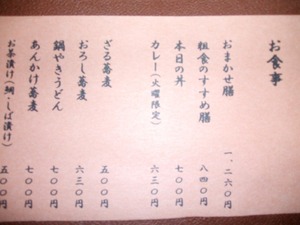 お食事
おまかせ膳 一、二六〇円
粗食のすすめ膳 八四〇円
本日の丼 七〇〇円
カレー(火曜限定) 六三〇円
ざる蕎麦 五〇〇円
おろし蕎麦 六三〇円
鍋やきうどん 七〇〇円
あんかけ蕎麦 七〇〇円
お茶漬け(鯛・しば漬け) 五〇〇円